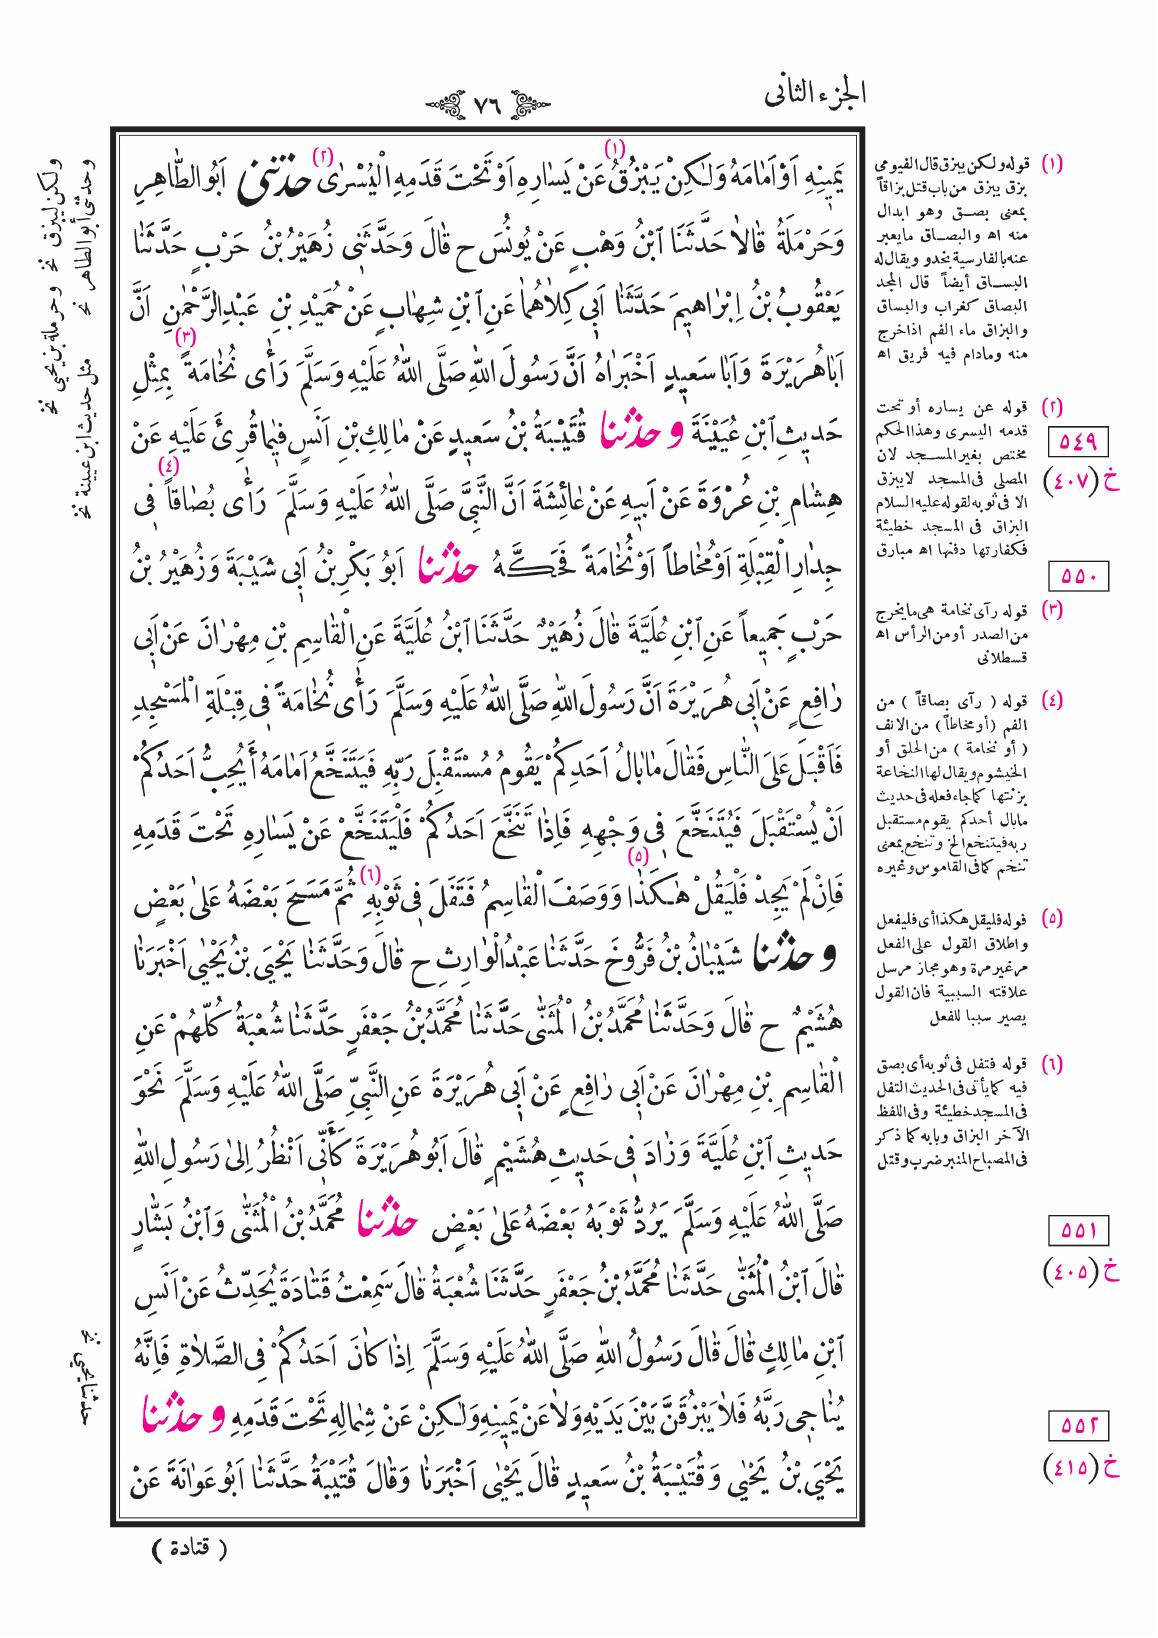 الجزء الثانى
٧٦
يَمينِهِ اَوْ اَمَامَهُ وَلٰكِنْ يَبْزُقُ (١) عَنْ يَسَارِهِ اَوْ تَحْتَ قَدَمِهِ الْيُسْرٰى (٢) حدثنى اَبُو الطَّاهِرِ
وَحَرْمَلَةُ قَالَا حَدَّثَنَا ابْنُ وَهْبٍ عَنْ يُونُسَ ح قَالَ وَحَدَّثَنِى زُهَيْرُ بْنُ حَرْبٍ حَدَّثَنَا
يَعْقُوبُ بْنُ اِبْرَاهِيمَ حَدَّثَنَا اَبِى كِلَاهُمَا عَنِ ابْنِ شِهَابٍ عَنْ حُمَيْدِ بْنِ عَبْدِ الرَّحْمٰنِ اَنَّ
اَبَا هُرَيْرَةَ وَاَبَا سَعيدٍ اَخْبَرَاهُ اَنَّ رَسُولَ اللّٰهِ صَلَّى اللّٰهُ عَلَيْهِ وَسَلَّمَ رَأٰى نُخَامَةً (٣) بِمِثْلِ
حَديثِ ابْنِ عُيَيْنَةَ و حدثنا قُتَيْبَةُ بْنُ سَعيدٍ عَنْ مَالِكِ بْنِ اَنَسٍ فيمَا قُرِئَ عَلَيْهِ عَنْ
هِشَامِ بْنِ عُرْوَةَ عَنْ اَبيهِ عَنْ عَائِشَةَ اَنَّ النَّبِىَّ صَلَّى اللّٰهُ عَلَيْهِ وَسَلَّمَ رَأٰى بُصَاقاً (٤) فِى
جِدَارِ الْقِبْلَةِ اَوْ مُخَاطاً اَوْ نُخَامَةً فَحَكَّهُ حدثنا اَبُو بَكْرِ بْنُ اَبِى شَيْبَةَ وَزُهَيْرُ بْنُ
حَرْبٍ جَميعاً عَنِ ابْنِ عُلَيَّةَ قَالَ زُهَيْرٌ حَدَّثَنَا ابْنُ عُلَيَّةَ عَنِ الْقَاسِمِ بْنِ مِهْرَانَ عَنْ اَبِى
رَافِعٍ عَنْ اَبِى هُرَيْرَةَ اَنَّ رَسُولَ اللّٰهِ صَلَّى اللّٰهُ عَلَيْهِ وَسَلَّمَ رَأٰى نُخَامَةً فِى قِبْلَةِ الْمَسْجِدِ
فَاَقْبَلَ عَلَى النَّاسِ فَقَالَ مَا بَالُ اَحَدِكُمْ يَقُومُ مُسْتَقْبِلَ رَبِّهِ فَيَتَنَخَّعُ اَمَامَهُ أَيُحِبُّ اَحَدُكُمْ
اَنْ يُسْتَقْبَلَ فَيُتَنَخَّعَ فِى وَجْهِهِ فَاِذَا تَنَخَّعَ اَحَدُكُمْ فَلْيَتَنَخَّعْ عَنْ يَسَارِهِ تَحْتَ قَدَمِهِ
فَاِنْ لَمْ يَجِدْ فَلْيَقُلْ هٰكَذَا (٥) وَوَصَفَ الْقَاسِمُ فَتَفَلَ فِى ثَوْبِهِ (٦) ثُمَّ مَسَحَ بَعْضَهُ عَلٰى بَعْضٍ
و حدثنا شَيْبَانُ بْنُ فَرُّوخَ حَدَّثَنَا عَبْدُ الْوَارِثِ ح قَالَ وَحَدَّثَنَا يَحْيَى بْنُ يَحْيٰى اَخْبَرَنَا
هُشَيْمٌ ح قَالَ وَحَدَّثَنَا مُحَمَّدُ بْنُ الْمُثَنّٰى حَدَّثَنَا مُحَمَّدُ بْنُ جَعْفَرٍ حَدَّثَنَا شُعْبَةُ كُلُّهُمْ عَنِ
الْقَاسِمِ بْنِ مِهْرَانَ عَنْ اَبِى رَافِعٍ عَنْ اَبِى هُرَيْرَةَ عَنِ النَّبِىِّ صَلَّى اللّٰهُ عَلَيْهِ وَسَلَّمَ نَحْوَ
حَديثِ ابْنِ عُلَيَّةَ وَزَادَ فِى حَديثِ هُشَيْمٍ قَالَ اَبُو هُرَيْرَةَ كَأَنِّى اَنْظُرُ اِلٰى رَسُولِ اللّٰهِ
صَلَّى اللّٰهُ عَلَيْهِ وَسَلَّمَ يَرُدُّ ثَوْبَهُ بَعْضَهُ عَلٰى بَعْضٍ حدثنا مُحَمَّدُ بْنُ الْمُثَنّٰى وَابْنُ بَشَّارٍ
قَالَ ابْنُ الْمُثَنّٰى حَدَّثَنَا مُحَمَّدُ بْنُ جَعْفَرٍ حَدَّثَنَا شُعْبَةُ قَالَ سَمِعْتُ قَتَادَةَ يُحَدِّثُ عَنْ اَنَسِ
ابْنِ مَالِكٍ قَالَ قَالَ رَسُولُ اللّٰهِ صَلَّى اللّٰهُ عَلَيْهِ وَسَلَّمَ اِذَا كَانَ اَحَدُكُمْ فِى الصَّلَاةِ فَاِنَّهُ
يُنَاجِى رَبَّهُ فَلَا يَبْزُقَنَّ بَيْنَ يَدَيْهِ وَلَا عَنْ يَمينِهِ وَلٰكِنْ عَنْ شِمَالِهِ تَحْتَ قَدَمِهِ و حدثنا
يَحْيَى بْنُ يَحْيٰى وَقُتَيْبَةُ بْنُ سَعيدٍ قَالَ يَحْيٰى اَخْبَرَنَا وَقَالَ قُتَيْبَةُ حَدَّثَنَا اَبُو عَوَانَةَ عَنْ
( قتادة )
(١) قوله ولكن يبزق قال الفيومى
بزق يبزق من باب قتل بزاقاً
بمعنى بصق وهو ابدال
منه اه والبصاق مايعبر
عنه بالفارسية بخدو ويقال له
البساق أيضاً قال المجد
البصاق كغراب والبساق
والبزاق ماء الفم اذا خرج
منه ومادام فيه فريق اه
(٢) قوله عن يساره أو تحت
قدمه اليسرى وهذا الحكم
مختص بغير المسجد لان
المصلى فى المسجد لايبزق
الا فى ثوبه لقوله عليه السلام
البزاق فى المسجد خطيئة
فكفارتها دفنها اه مبارق
(٣) قوله رآى نخامة هى مايخرج
من الصدر أو من الرأس اه
قسطلانى
(٤) قوله ( رآى بصاقاً ) من
الفم ( أو مخاطاً ) من الانف
( أو نخامة ) من الحلق أو
الخيشوم ويقال لها النخاعة
بزنتها كما جاء فعله فى حديث
مابال أحدكم يقوم مستقبل
ربه فيتنخع الخ وتنخع بمعنى
تنخم كما فى القاموس وغيره
(٥) قوله فليقل هكذا أى فليفعل
واطلاق القول على الفعل
مر غير مرة وهو مجاز مرسل
علاقته السببية فان القول
يصير سببا للفعل
(٦) قوله فتفل فى ثوبه أى بصق
فيه كما يأتى فى الحديث التفل
فى المسجد خطيئة وفى اللفظ
الآخر البزاق وبابه كما ذكر
فى المصباح المنير ضرب وقتل
٥٤٩
خ (٤٠٧)
٥٥٠
٥٥١
خ (٤٠٥)
٥٥٢
خ (٤١٥)
ولكن ليبزق نخ وحرملة بن يحيى نخ
وحدثنى أبو الطاهر نخ مثل حديث ابن عيينة نخ
حدثنا يحيى نخ